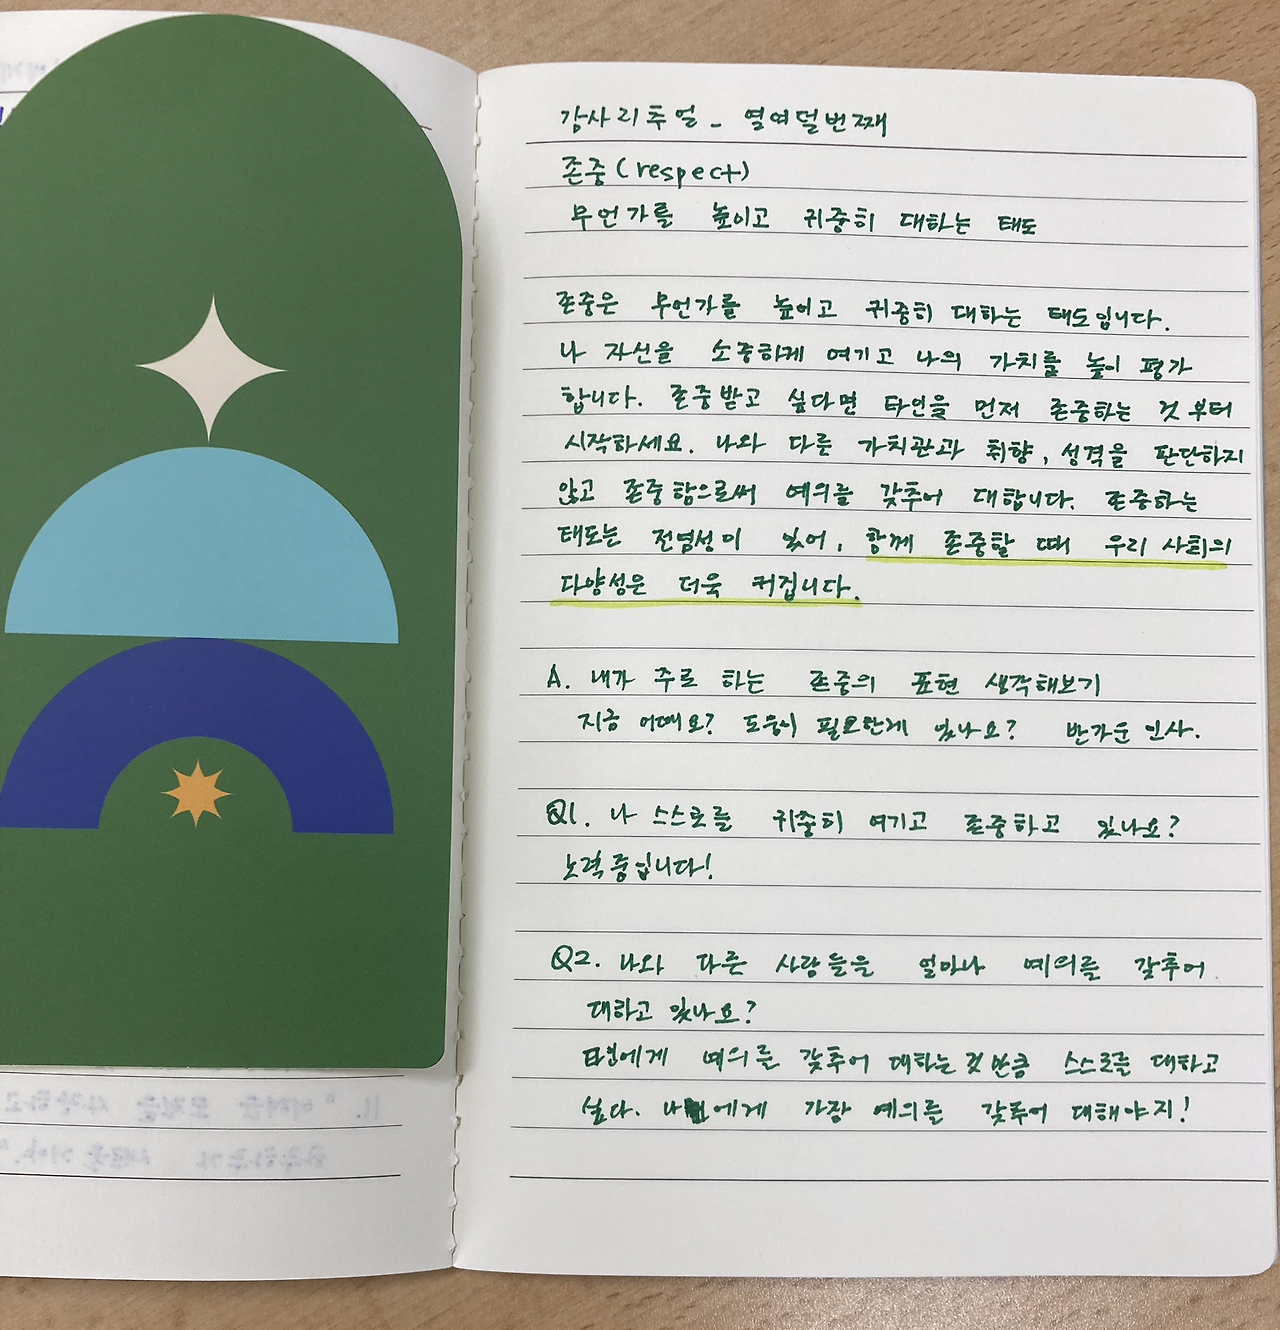 감사리추얼 - 열여덟번째
존중(respect)
무언가를 높이고 귀중히 대하는 태도
존중은 무언가를 높이고 귀중히 대하는 태도입니다.
나 자신을 소중하게 여기고 나의 가치를 높이 평가
합니다. 존중받고 싶다면 타인을 먼저 존중하는 것부터
시작하세요. 나와 다른 가치관과 취향, 성격을 판단하지
않고 존중함으로써 예의를 갖추어 대합니다. 존중하는
태도는 전염성이 있어, 함께 존중할 때 우리 사회의
다양성은 더욱 커집니다.
A. 내가 주로 하는 존중의 표현 생각해보기
지금 어때요? 도움이 필요한게 있나요? 반가운 인사.
Q1. 나 스스로를 귀중히 여기고 존중하고 있나요?
노력중입니다!
Q2. 나와 다른 사람들을 얼마나 예의를 갖추어
대하고 있나요?
타인에게 예의를 갖추어 대하는것만큼 스스로를 대하고
싶다. 나에게 가장 예의를 갖추어 대해야지!